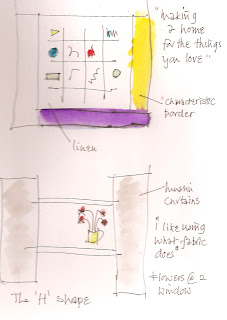 "Making
a home
for the things
you love"
characteristic
border
linen
muslin
curtains
"I like using
what fabric
does"
flowers @ a
window
The 'H' shape